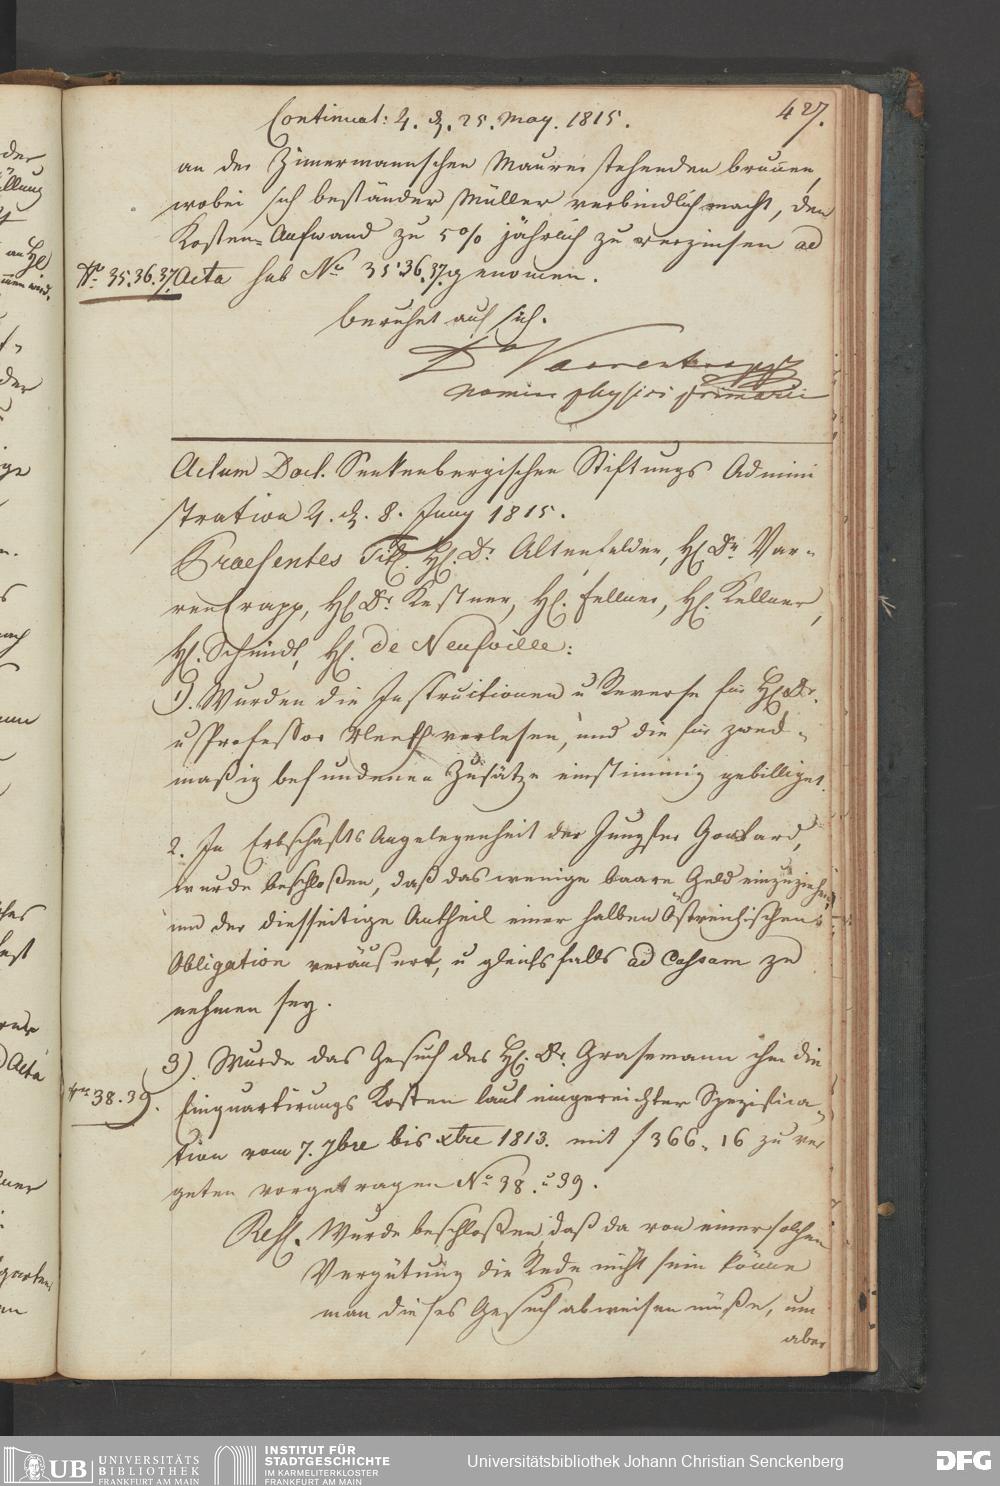 427.
Continuat: 4. d. 25. May. 1815.
an der Zimermannschen Mauer stehenden brunnen,
wobei sich beständer Müller verbindlich macht, den
Kosten-Aufwand zu 5% jährlich zu verzinsen ad
Nr. 35.36.37. Acta sub No. 35.36.37. genomen.
beruhet auf sich.
Dr Varrentrapp
nomine physici primarii
Actum Doct. Senkenbergischen Stiftungs Admini
stration 4. d. 8. Juny 1815.
Praesentes Tit. H. Dr. Altenfelder, H. Dr. Var-
rentrapp, H. Dr. Kestner, H. Fellner, H. Kellner,
H. Schmidt, H. de Neufville:
1). Wurden die Instructionen u Reverse für H. Dr.
u Professor Neeff verlesen, und die für zweck-
maßig befundenen Zusätze einstimmig gebilliget.
2. In Erbschafts Angelegenheit der Jungfer Gontard,
wurde beschloßen, daß das wenige baare Geld einzuziehen,
und der diesseitige Antheil einer halben Östreichischen
Obligation veräusert, u gleichsfalls ad Cassam zu
nehmen sey.
3). Wurde das Gesuch des H. Dr. Grasemann ihm die
Nr. 38.39.
Einquartirungs Kosten laut eingereichter Spezifica-
tion vom 7. 7bre bis xbre 1813. mit f 366, 16 zu ver
geten vorgetragen No. 38. u 39.
Resl. Wurde beschloßen, daß da von einer solchen
Vergütung die Rede nicht sein könne
man dieses Gesuch abweisen müße, um
aber
UNIVERSITÄTS
BIBLIOTHEK
FRANKFURT AM MAIN
INSTITUT FÜR
STADTGESCHICHTE
IM KARMELITERKLOSTER
FRANKFURT AM MAIN
Universitätsbibliothek Johann Christian Senckenberg
DFG